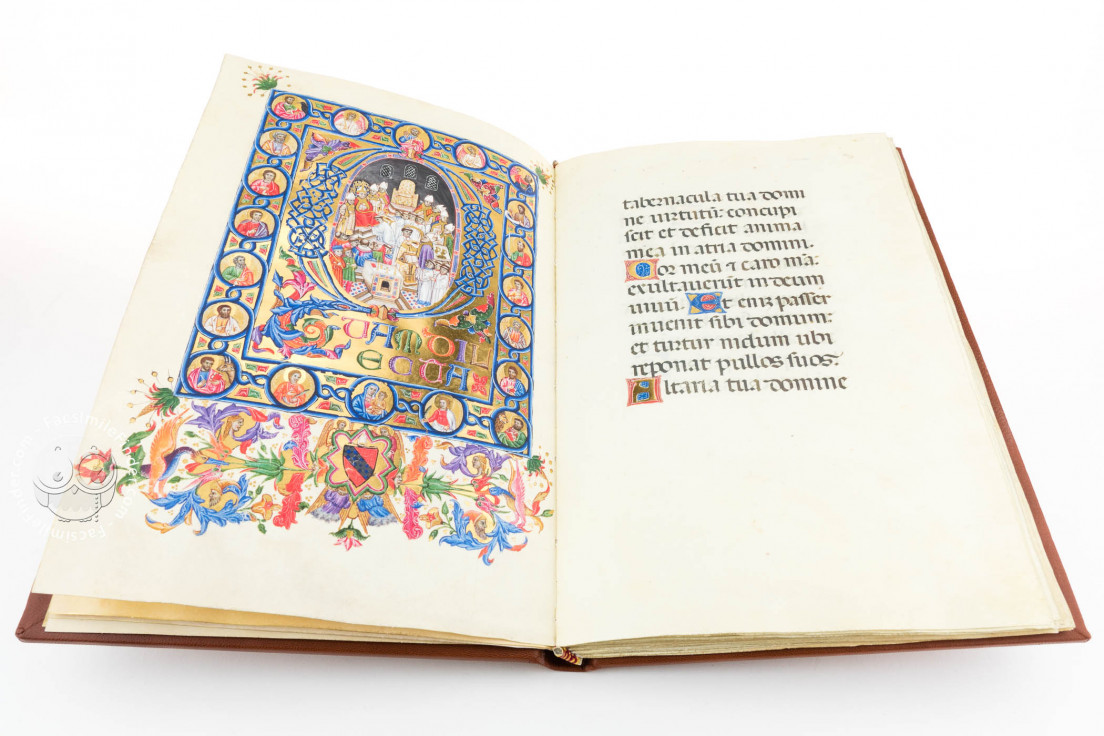 QUAM DIL
ECTA
tabernacula tua domi
ne uirtutū: concupi
scit et deficit anima
mea in atria domini.
Cor meū ⁊ caro m̄a:
exultauerūt in deum
uiuū. Et eniʒ passer
inuenit sibi domum:
et turtur nidum ubi
reponat pullos suos.
Altaria tua domine